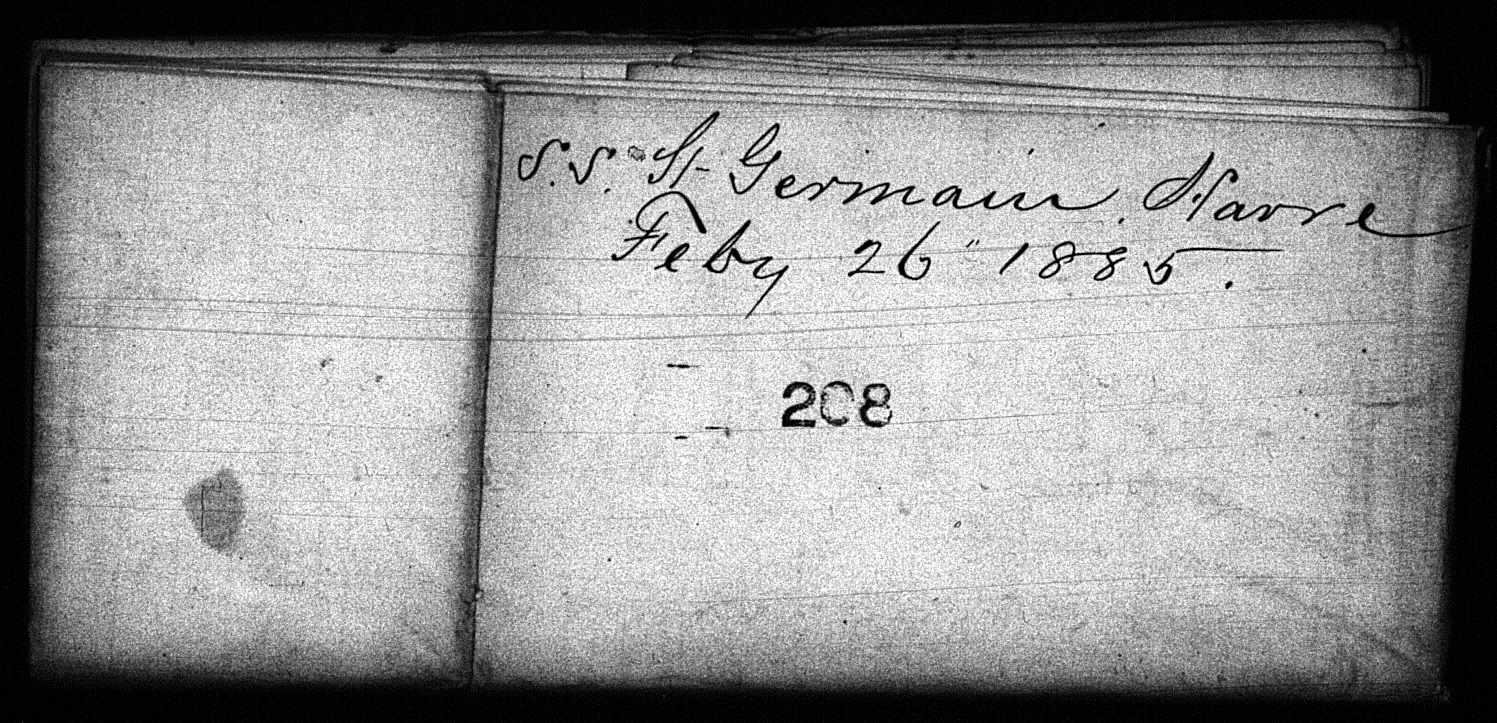 S.S. St Germain. Havre
Feby 26" 1885.
208